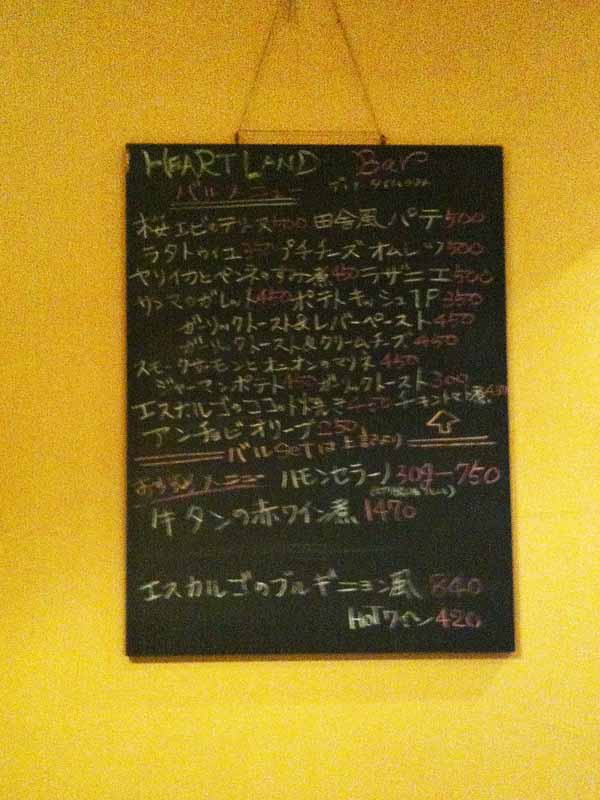 HEARTLAND Bar
バルメニュー
桜エビのテリーヌ500 田舎風パテ500
ラタトゥイユ350 プチチーズオムレツ500
ヤリイカとペンネのすみ煮450 ラザニエ500
サンマのガレット450 ポテトキッシュ1P 350
ガーリックトースト&レバーペースト450
ガーリックトースト&クリームチーズ450
スモークサーモンとオニオンのマリネ450
ジャーマンポテト450 ガーリックトースト300
エスカルゴのココット焼き トマト煮
アンチョビオリーブ250
バルsetは上記より
おすすメニュー ハモンセラーノ30g-750
牛タンの赤ワイン煮 1470
エスカルゴのブルギニョン風 840
HOTワイン420